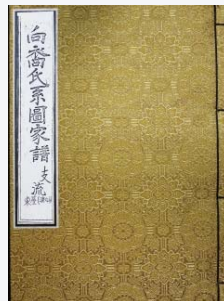 向喬氏系圖家譜
支流